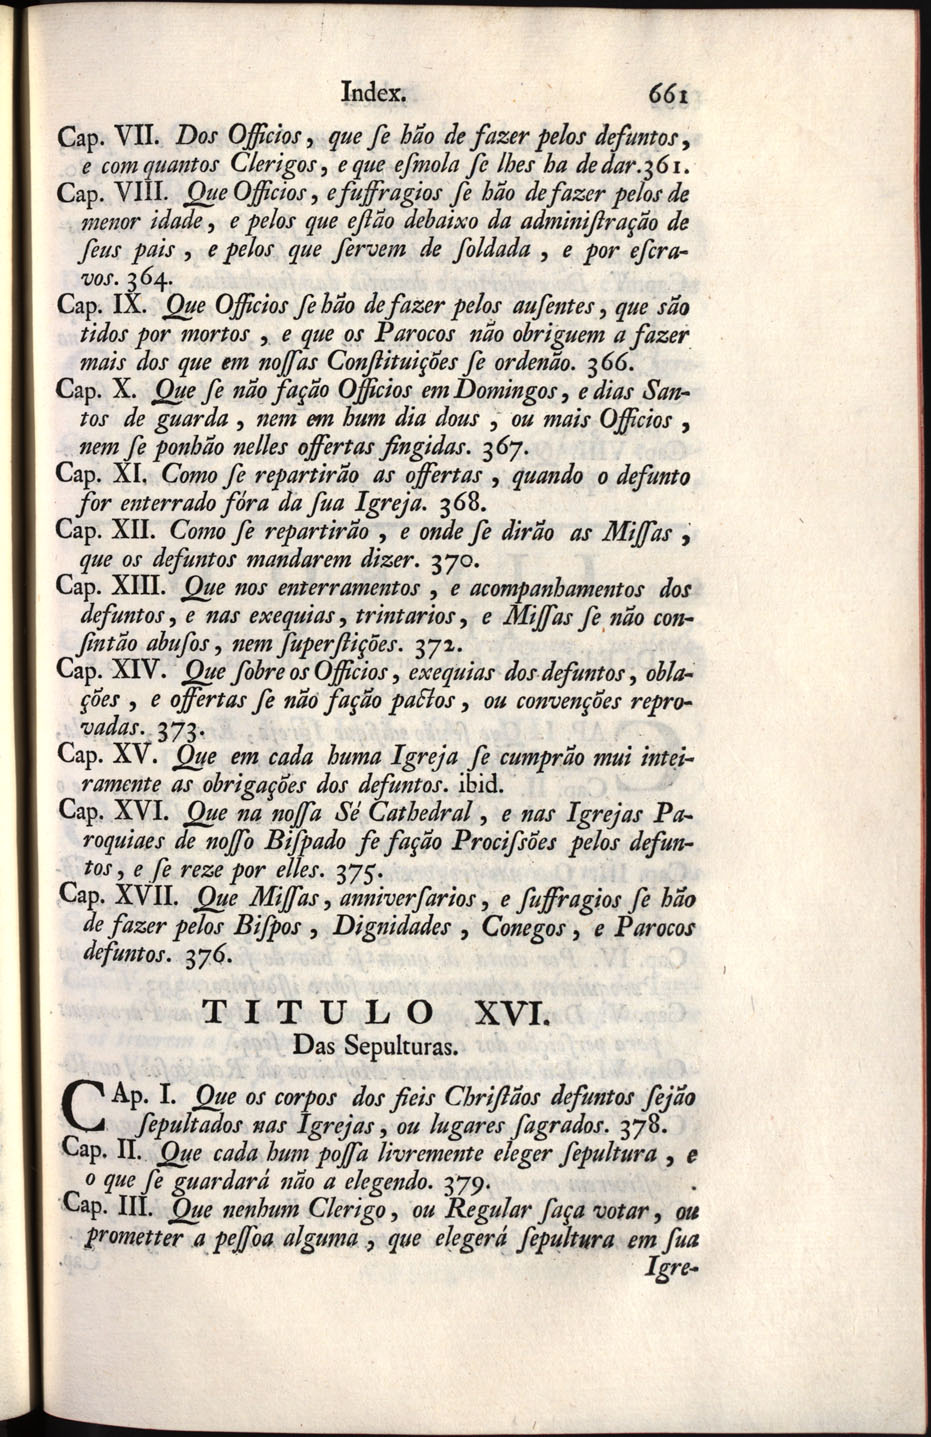 Index. 661
Cap. VII. Dos Officios, que ſe hão de fazer pelos defuntos,
e com quantos Clerigos, e que eſmola ſe lhes ha de dar. 361.
Cap. VIII. Que Officios, e ſuffragios ſe hão de fazer pelos de
menor idade, e pelos que eſtão debaixo da adminiſtração de
ſeus pais, e pelos que ſervem de ſoldada, e por eſcra-
vos. 364.
Cap. IX. Que Officios ſe hão de fazer pelos auſentes, que são
tidos por mortos, e que os Parocos não obriguem a fazer
mais dos que em noſſas Conſtituições ſe ordenão. 366.
Cap. X. Que ſe não fação Officios em Domingos, e dias San-
tos de guarda, nem em hum dia dous, ou mais Officios,
nem ſe ponhão nelles offertas fingidas. 367.
Cap. XI. Como ſe repartirão as offertas, quando o defunto
for enterrado fóra da ſua Igreja. 368.
Cap. XII. Como ſe repartirão, e onde ſe dirão as Miſſas,
que os defuntos mandarem dizer. 370.
Cap. XIII. Que nos enterramentos, e acompanhamentos dos
defuntos, e nas exequias, trintarios, e Miſſas ſe não con-
ſintão abuſos, nem ſuperſtições. 372.
Cap. XIV. Que ſobre os Officios, exequias dos defuntos, obla-
ções, e offertas ſe não fação pactos, ou convenções repro-
vadas. 373.
Cap. XV. Que em cada huma Igreja ſe cumprão mui intei-
ramente as obrigações dos defuntos. ibid.
Cap. XVI. Que na noſſa Sé Cathedral, e nas Igrejas Pa-
roquiaes de noſſo Biſpado fe fação Prociſsões pelos defun-
tos, e ſe reze por elles. 375.
Cap. XVII. Que Miſſas, anniverſarios, e ſuffragios ſe hão
de fazer pelos Biſpos, Dignidades, Conegos, e Parocos
defuntos. 376.
TITULO XVI.
Das Sepulturas.
CAp. I. Que os corpos dos fieis Chriſtãos defuntos ſejão
ſepultados nas Igrejas, ou lugares ſagrados. 378.
Cap. II. Que cada hum poſſa livremente eleger ſepultura, e
o que ſe guardará não a elegendo. 379.
Cap. III. Que nenhum Clerigo, ou Regular ſaça votar, ou
prometter a peſſoa alguma, que elegerá ſepultura em ſua
Igre-